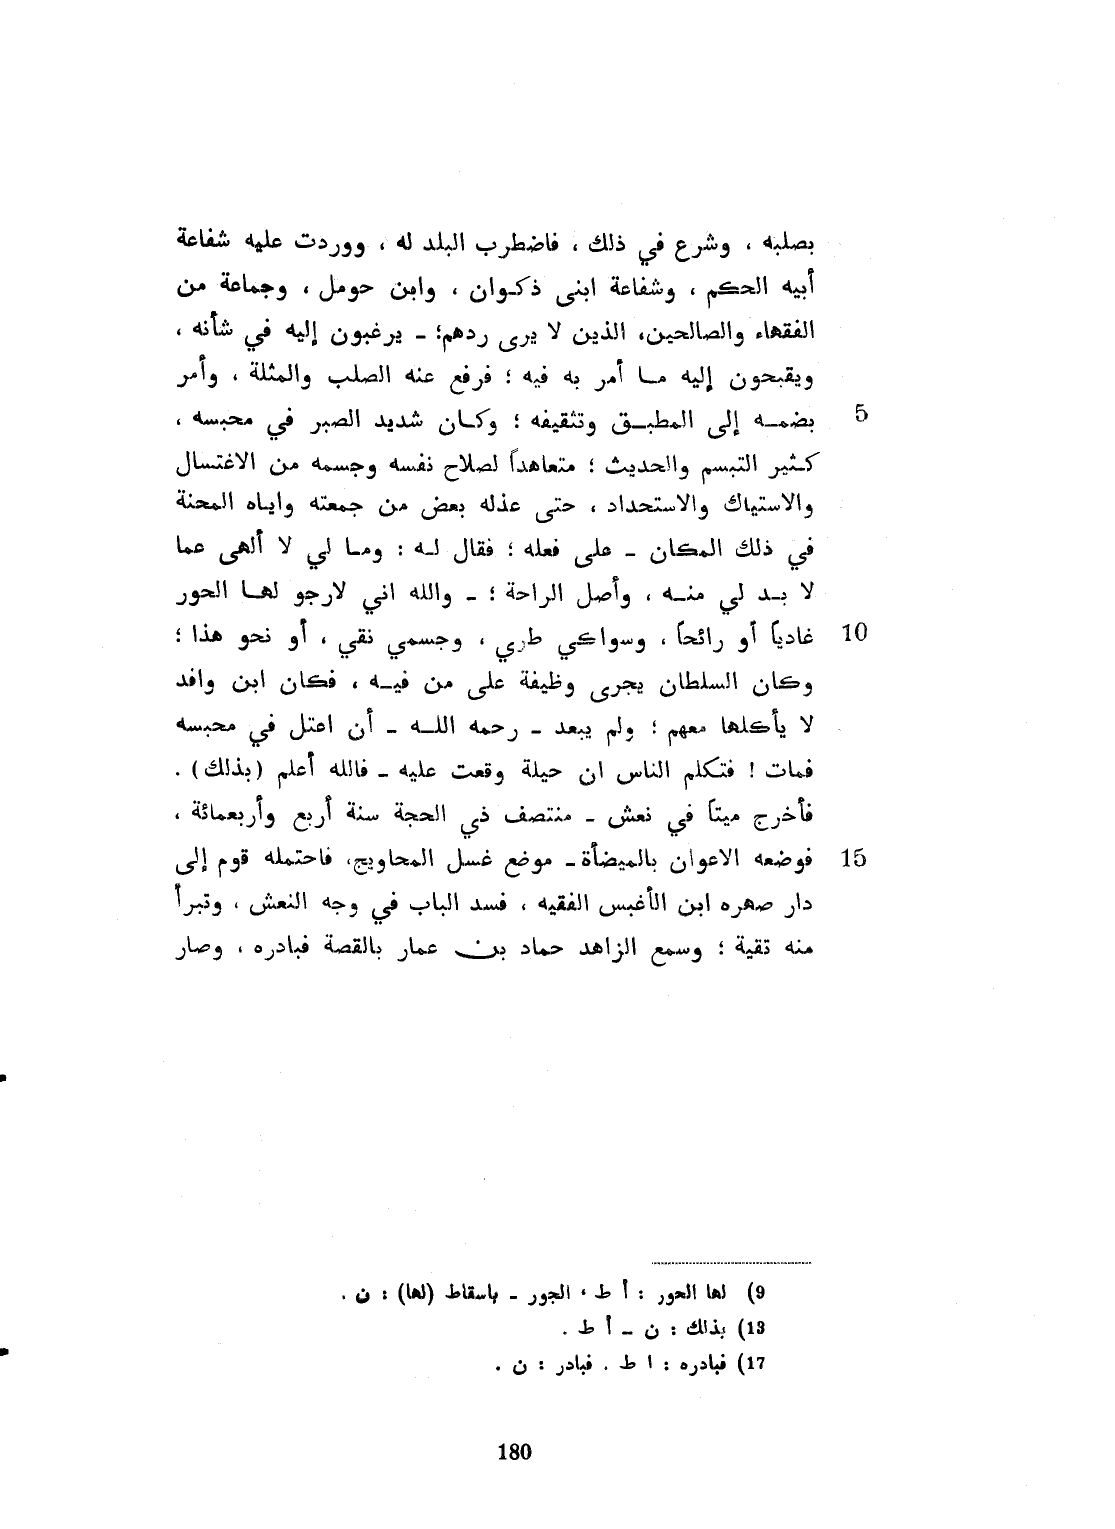 بصلبه ، وشرع في ذلك ، فاضطرب البلد له ، ووردت عليه شفاعة
أبيه الحكم ، وشفاعة ابنى ذكوان ، وابن حومل ، وجماعة من
الفقهاء والصالحين، الذين لا يرى ردهم؛ - يرغبون إليه في شأنه ،
ويقبحون إليه ما أمر به فيه ؛ فرفع عنه الصلب والمثلة ، وأمر
5 بضمه إلى المطبق وتثقيفه ؛ وكان شديد الصبر في محبسه ،
كثير التبسم والحديث ؛ متعاهداً لصلاح نفسه وجسمه من الاغتسال
والاستياك والاستحداد ، حتى عذله بعض من جمعته واياه المحنة
في ذلك المكان - على فعله ؛ فقال له : وما لي لا ألهى عما
لا بد لي منه ، وأصل الراحة ؛ - والله اني لارجو لها الحور
10 غادياً أو رائحاً ، وسواكي طري ، وجسمي نقي ، أو نحو هذا ؛
وكان السلطان يجرى وظيفة على من فيه ، فكان ابن وافد
لا يأكلها معهم ؛ ولم يبعد - رحمه الله - أن اعتل في محبسه
فمات ! فتكلم الناس ان حيلة وقعت عليه - فالله أعلم (بذلك) .
فأخرج ميتاً في نعش - منتصف ذي الحجة سنة أربع وأربعمائة ،
15 فوضعه الاعوان بالميضأة - موضع غسل المحاويج، فاحتمله قوم إلى
دار صهره ابن الأغبس الفقيه ، فسد الباب في وجه النعش ، وتبرأ
منه تقية ؛ وسمع الزاهد حماد بن عمار بالقصة فبادره ، وصار
9) لها الحور : أ ط ، الجور - باسقاط (لها) : ن .
13) بذلك : ن - أ ط .
17) فبادره : ا ط . فبادر : ن .
180